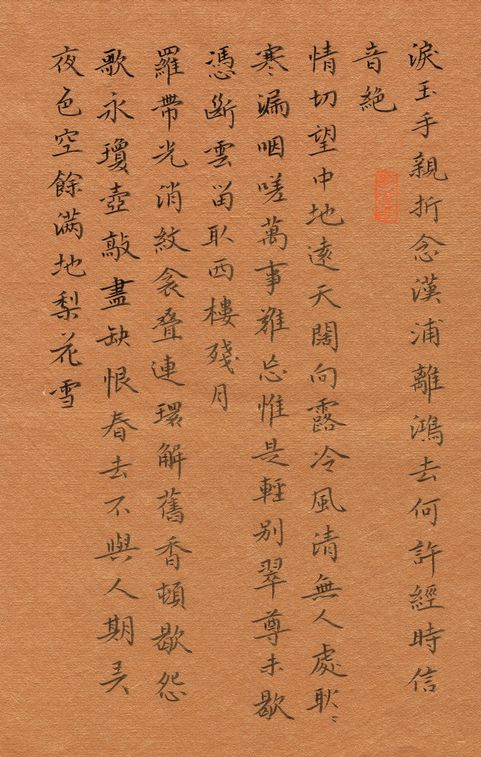 淚玉手親折念漢浦離鴻去何許經時信
音絕
情切望中地遠天闊向露冷風清無人處耿〻
寒漏咽嗟萬事難忘惟是輕別翠尊未歇
憑斷雲留取西樓殘月
羅帶光消紋衾疊連環解舊香頓歇怨
歌永瓊壺敲盡缺恨春去不與人期弄
夜色空餘滿地梨花雪